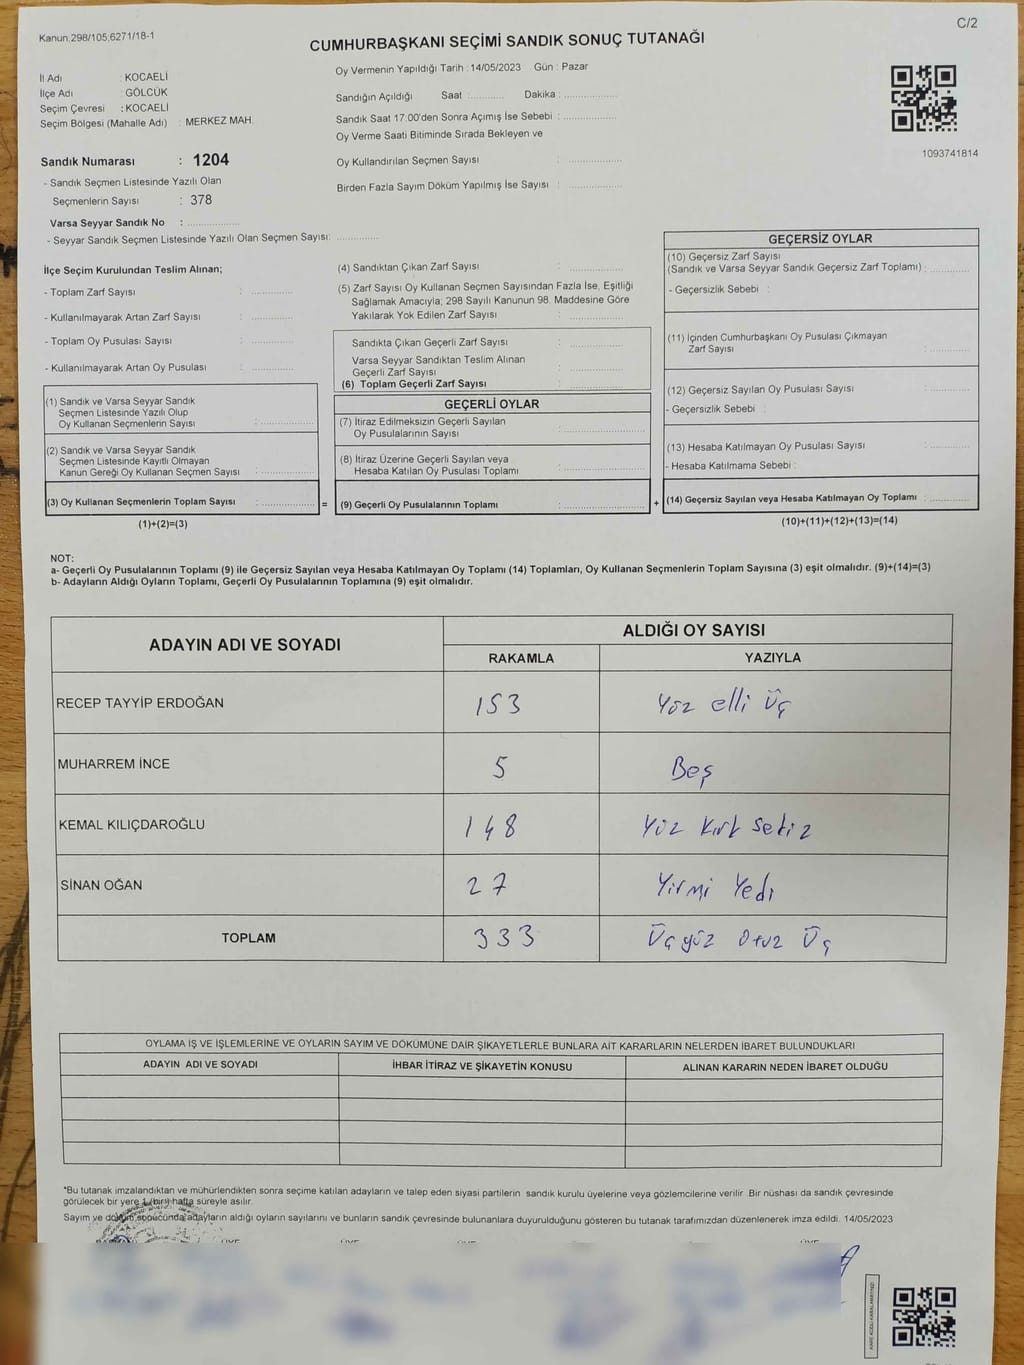 Kanun;298/105;6271/18-1
C/2
CUMHURBAŞKANI SEÇİMİ SANDIK SONUÇ TUTANAĞI
İl Adı : KOCAELİ
İlçe Adı : GÖLCÜK
Seçim Çevresi : KOCAELİ
Seçim Bölgesi (Mahalle Adı) : MERKEZ MAH.
Sandık Numarası : 1204
- Sandık Seçmen Listesinde Yazılı Olan
Seçmenlerin Sayısı : 378
Varsa Seyyar Sandık No : ................
- Seyyar Sandık Seçmen Listesinde Yazılı Olan Seçmen Sayısı: .............
Oy Vermenin Yapıldığı Tarih : 14/05/2023 Gün : Pazar
Sandığın Açıldığı Saat : ........... Dakika : ................
Sandık Saat 17:00'den Sonra Açımış İse Sebebi : ................
Oy Verme Saati Bitiminde Sırada Bekleyen ve
Oy Kullandırılan Seçmen Sayısı : ................
Birden Fazla Sayım Döküm Yapılmış İse Sayısı : ................
1093741814
İlçe Seçim Kurulundan Teslim Alınan;
- Toplam Zarf Sayısı : .............
- Kullanılmayarak Artan Zarf Sayısı : .............
- Toplam Oy Pusulası Sayısı : .............
- Kullanılmayarak Artan Oy Pusulası : .............
(1) Sandık ve Varsa Seyyar Sandık
Seçmen Listesinde Yazılı Olup
Oy Kullanan Seçmenlerin Sayısı : ................
(2) Sandık ve Varsa Seyyar Sandık
Seçmen Listesinde Kayıtlı Olmayan
Kanun Gereği Oy Kullanan Seçmen Sayısı : ................
(3) Oy Kullanan Seçmenlerin Toplam Sayısı : ................
(1)+(2)=(3)
=
(4) Sandıktan Çıkan Zarf Sayısı : ................
(5) Zarf Sayısı Oy Kullanan Seçmen Sayısından Fazla İse, Eşitliği
Sağlamak Amacıyla; 298 Sayılı Kanunun 98. Maddesine Göre
Yakılarak Yok Edilen Zarf Sayısı : ................
Sandıkta Çıkan Geçerli Zarf Sayısı : ................
Varsa Seyyar Sandıktan Teslim Alınan
Geçerli Zarf Sayısı : ................
(6) Toplam Geçerli Zarf Sayısı : ................
GEÇERLİ OYLAR
(7) İtiraz Edilmeksizin Geçerli Sayılan
Oy Pusulalarının Sayısı : ................
(8) İtiraz Üzerine Geçerli Sayılan veya
Hesaba Katılan Oy Pusulası Toplamı : ................
(9) Geçerli Oy Pusulalarının Toplamı : ................
+
GEÇERSİZ OYLAR
(10) Geçersiz Zarf Sayısı
(Sandık ve Varsa Seyyar Sandık Geçersiz Zarf Toplamı) : ............
- Geçersizlik Sebebi :
(11) İçinden Cumhurbaşkanı Oy Pusulası Çıkmayan
Zarf Sayısı : ............
(12) Geçersiz Sayılan Oy Pusulası Sayısı : ............
- Geçersizlik Sebebi :
(13) Hesaba Katılmayan Oy Pusulası Sayısı : ............
- Hesaba Katılmama Sebebi :
(14) Geçersiz Sayılan veya Hesaba Katılmayan Oy Toplamı : ............
(10)+(11)+(12)+(13)=(14)
NOT:
a- Geçerli Oy Pusulalarının Toplamı (9) ile Geçersiz Sayılan veya Hesaba Katılmayan Oy Toplamı (14) Toplamları, Oy Kullanan Seçmenlerin Toplam Sayısına (3) eşit olmalıdır. (9)+(14)=(3)
b- Adayların Aldığı Oyların Toplamı, Geçerli Oy Pusulalarının Toplamına (9) eşit olmalıdır.
ADAYIN ADI VE SOYADI
ALDIĞI OY SAYISI
RAKAMLA YAZIYLA
RECEP TAYYİP ERDOĞAN 153 Yüz elli üç
MUHARREM İNCE 5 Beş
KEMAL KILIÇDAROĞLU 148 Yüz kırk sekiz
SİNAN OĞAN 27 Yirmi Yedi
TOPLAM 333 Üç yüz Otuz Üç
OYLAMA İŞ VE İŞLEMLERİNE VE OYLARIN SAYIM VE DÖKÜMÜNE DAİR ŞİKAYETLERLE BUNLARA AİT KARARLARIN NELERDEN İBARET BULUNDUKLARI
ADAYIN ADI VE SOYADI İHBAR İTİRAZ VE ŞİKAYETİN KONUSU ALINAN KARARIN NEDEN İBARET OLDUĞU
*Bu tutanak imzalandıktan ve mühürlendikten sonra seçime katılan adayların ve talep eden siyasi partilerin sandık kurulu üyelerine veya gözlemcilerine verilir .Bir nüshası da sandık çevresinde
görülecek bir yere 1 (bir) hafta süreyle asılır.
Sayım ve döküm sonucunda adayların aldığı oyların sayılarını ve bunların sandık çevresinde bulunanlara duyurulduğunu gösteren bu tutanak tarafımızdan düzenlenerek imza edildi. 14/05/2023